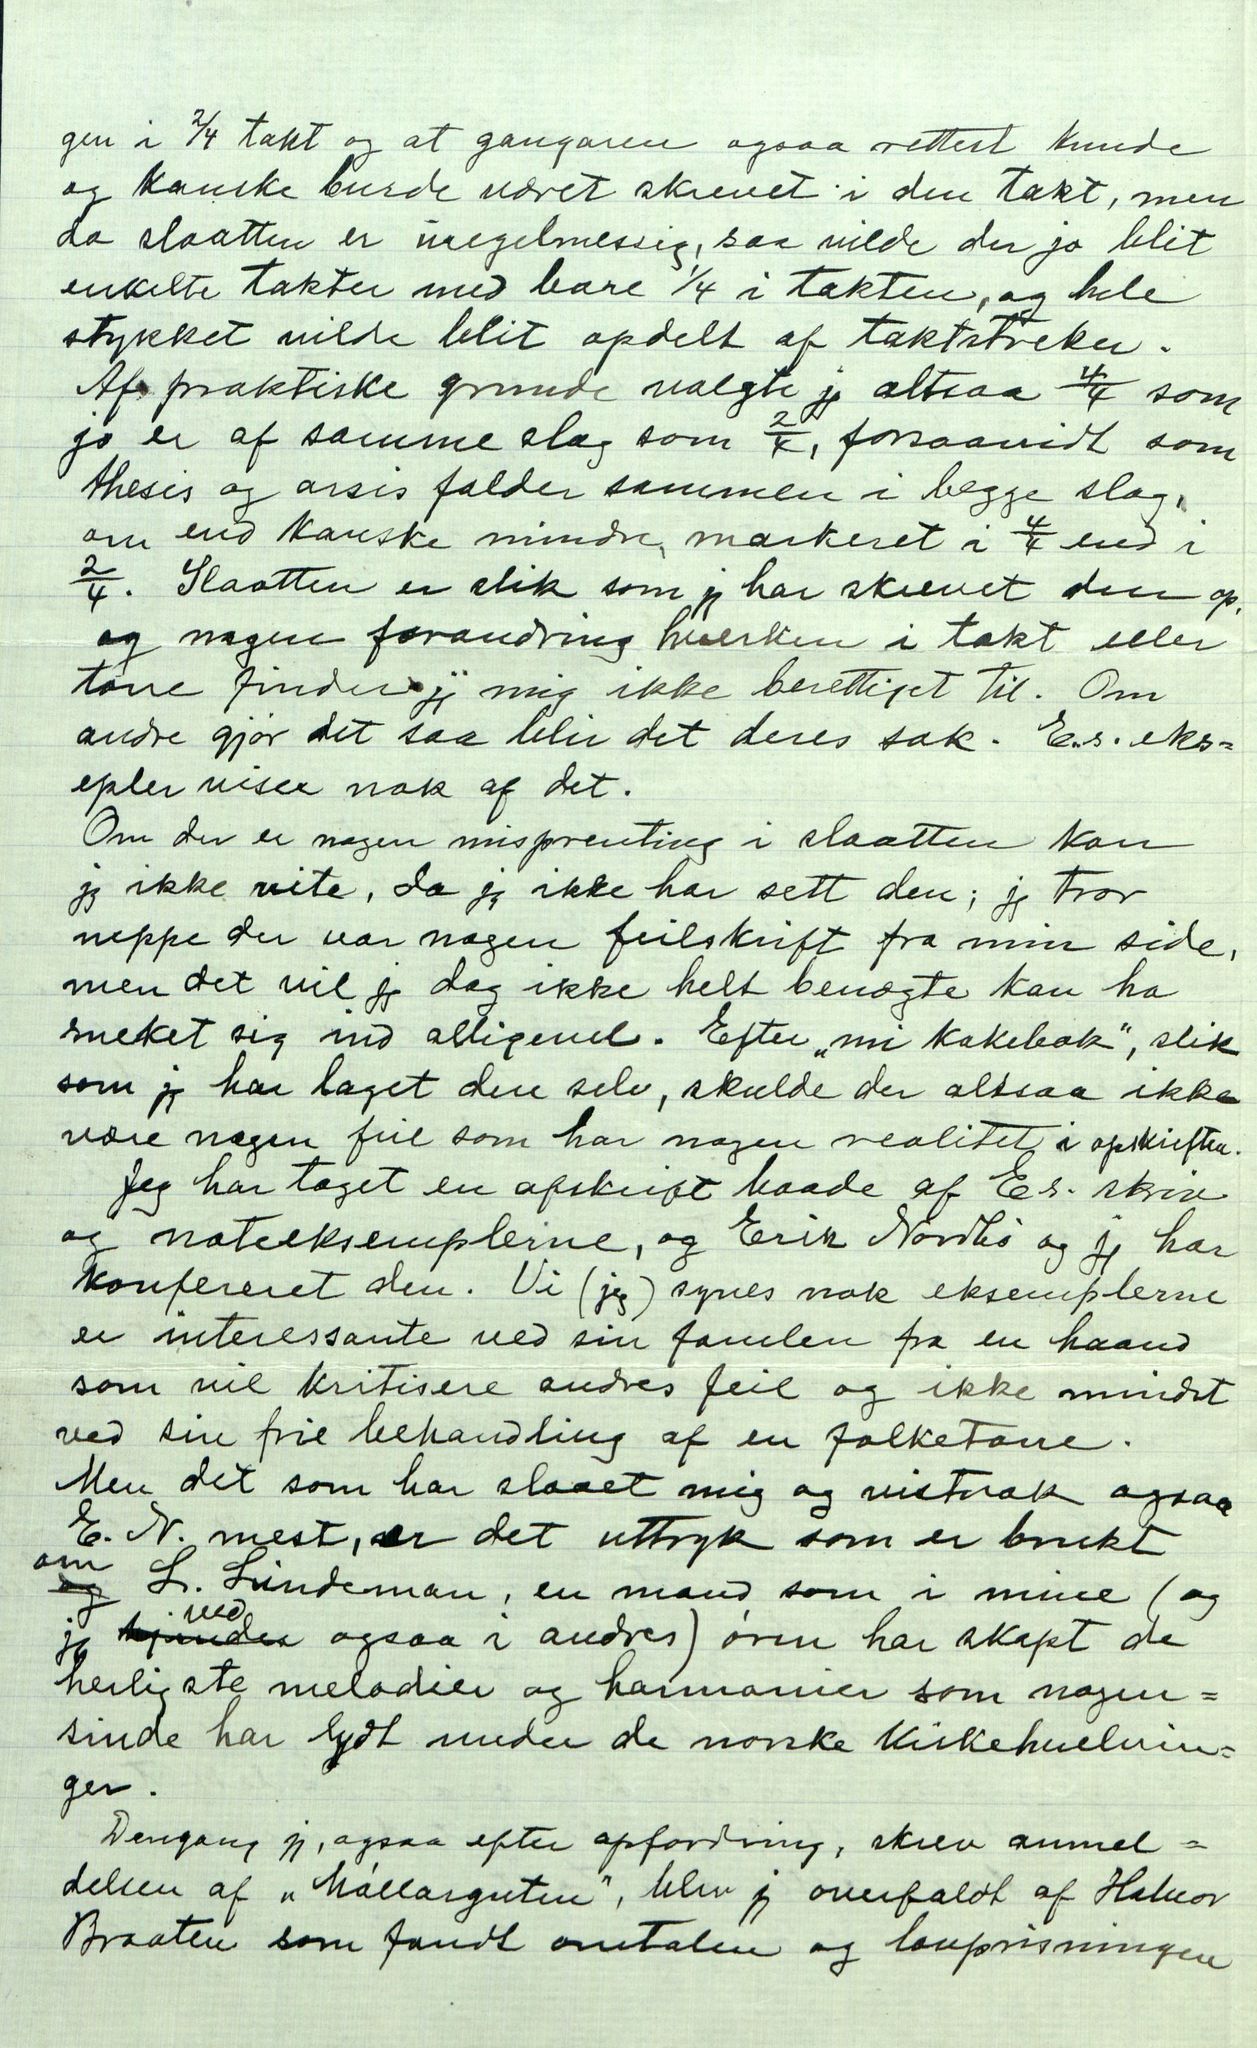 gen i 2/4 takt og at gangaren ogsaa rettest kunde
og kanske burde været skrevet i den takt, men
da slaatten er uregelmessig, saa vilde der jo blit
enkelte takter med bare 1/4 i takten, og hele
stykket vilde blit opdelt af taktstreker.
Af praktiske grunde valgte jg altsaa 4/4 som
jo er af samme slag som 2/4, forsaavidt som
thesis og arsis falder sammen i begge slag,
om end kanske mindre markeret i 4/4 end i
2/4. Slaatten er slik som jg har skrevet den op,
og nogen forandring hverken i takt eller
tone finder jg mig ikke berettiget til. Om
andre gjør det saa blir det deres sak. E.s. eks=
epler viser nok af det.
Om der er nogen misprenting i slaatten kan
jg ikke vite, da jg ikke har sett den; jg tror
neppe der var nogen feilskrift fra min side,
men det vil jg dog ikke helt benegte kan ha
sneket sig ind alligevel. Efter „mi kokebok", slik
som jg har laget den selv, skulde der altsaa ikke
være nogen feil som har nogen realitet i opskriften.
Jeg har taget en afskrift baade af E.s. skriv
og noteeksemplerne, og Erik Nordbø og jg har
konfereret den. Vi (jeg) synes nok eksemplerne
er interessante ved sin famlen fra en haand
som vil kritisere andres feil og ikke mindst
ved sin frie behandling af en folketone.
Men det som har slaaet mig og vistnok ogsaa
E. N. mest, er det uttryk som er brukt
om L. Lindeman, en mand som i mine (og
jg ved ogsaa i andres) øren har skapt de
herligste melodier og harmonier som nogen=
sinde har lydt under de norske kirkehvelvin=
ger.
Dengang jg, ogsaa efter opfordring, skrev anmel=
delsen af „Møllarguten", blev jg overfaldt af Halvor
Braaten som fandt omtalen og lovprisningen